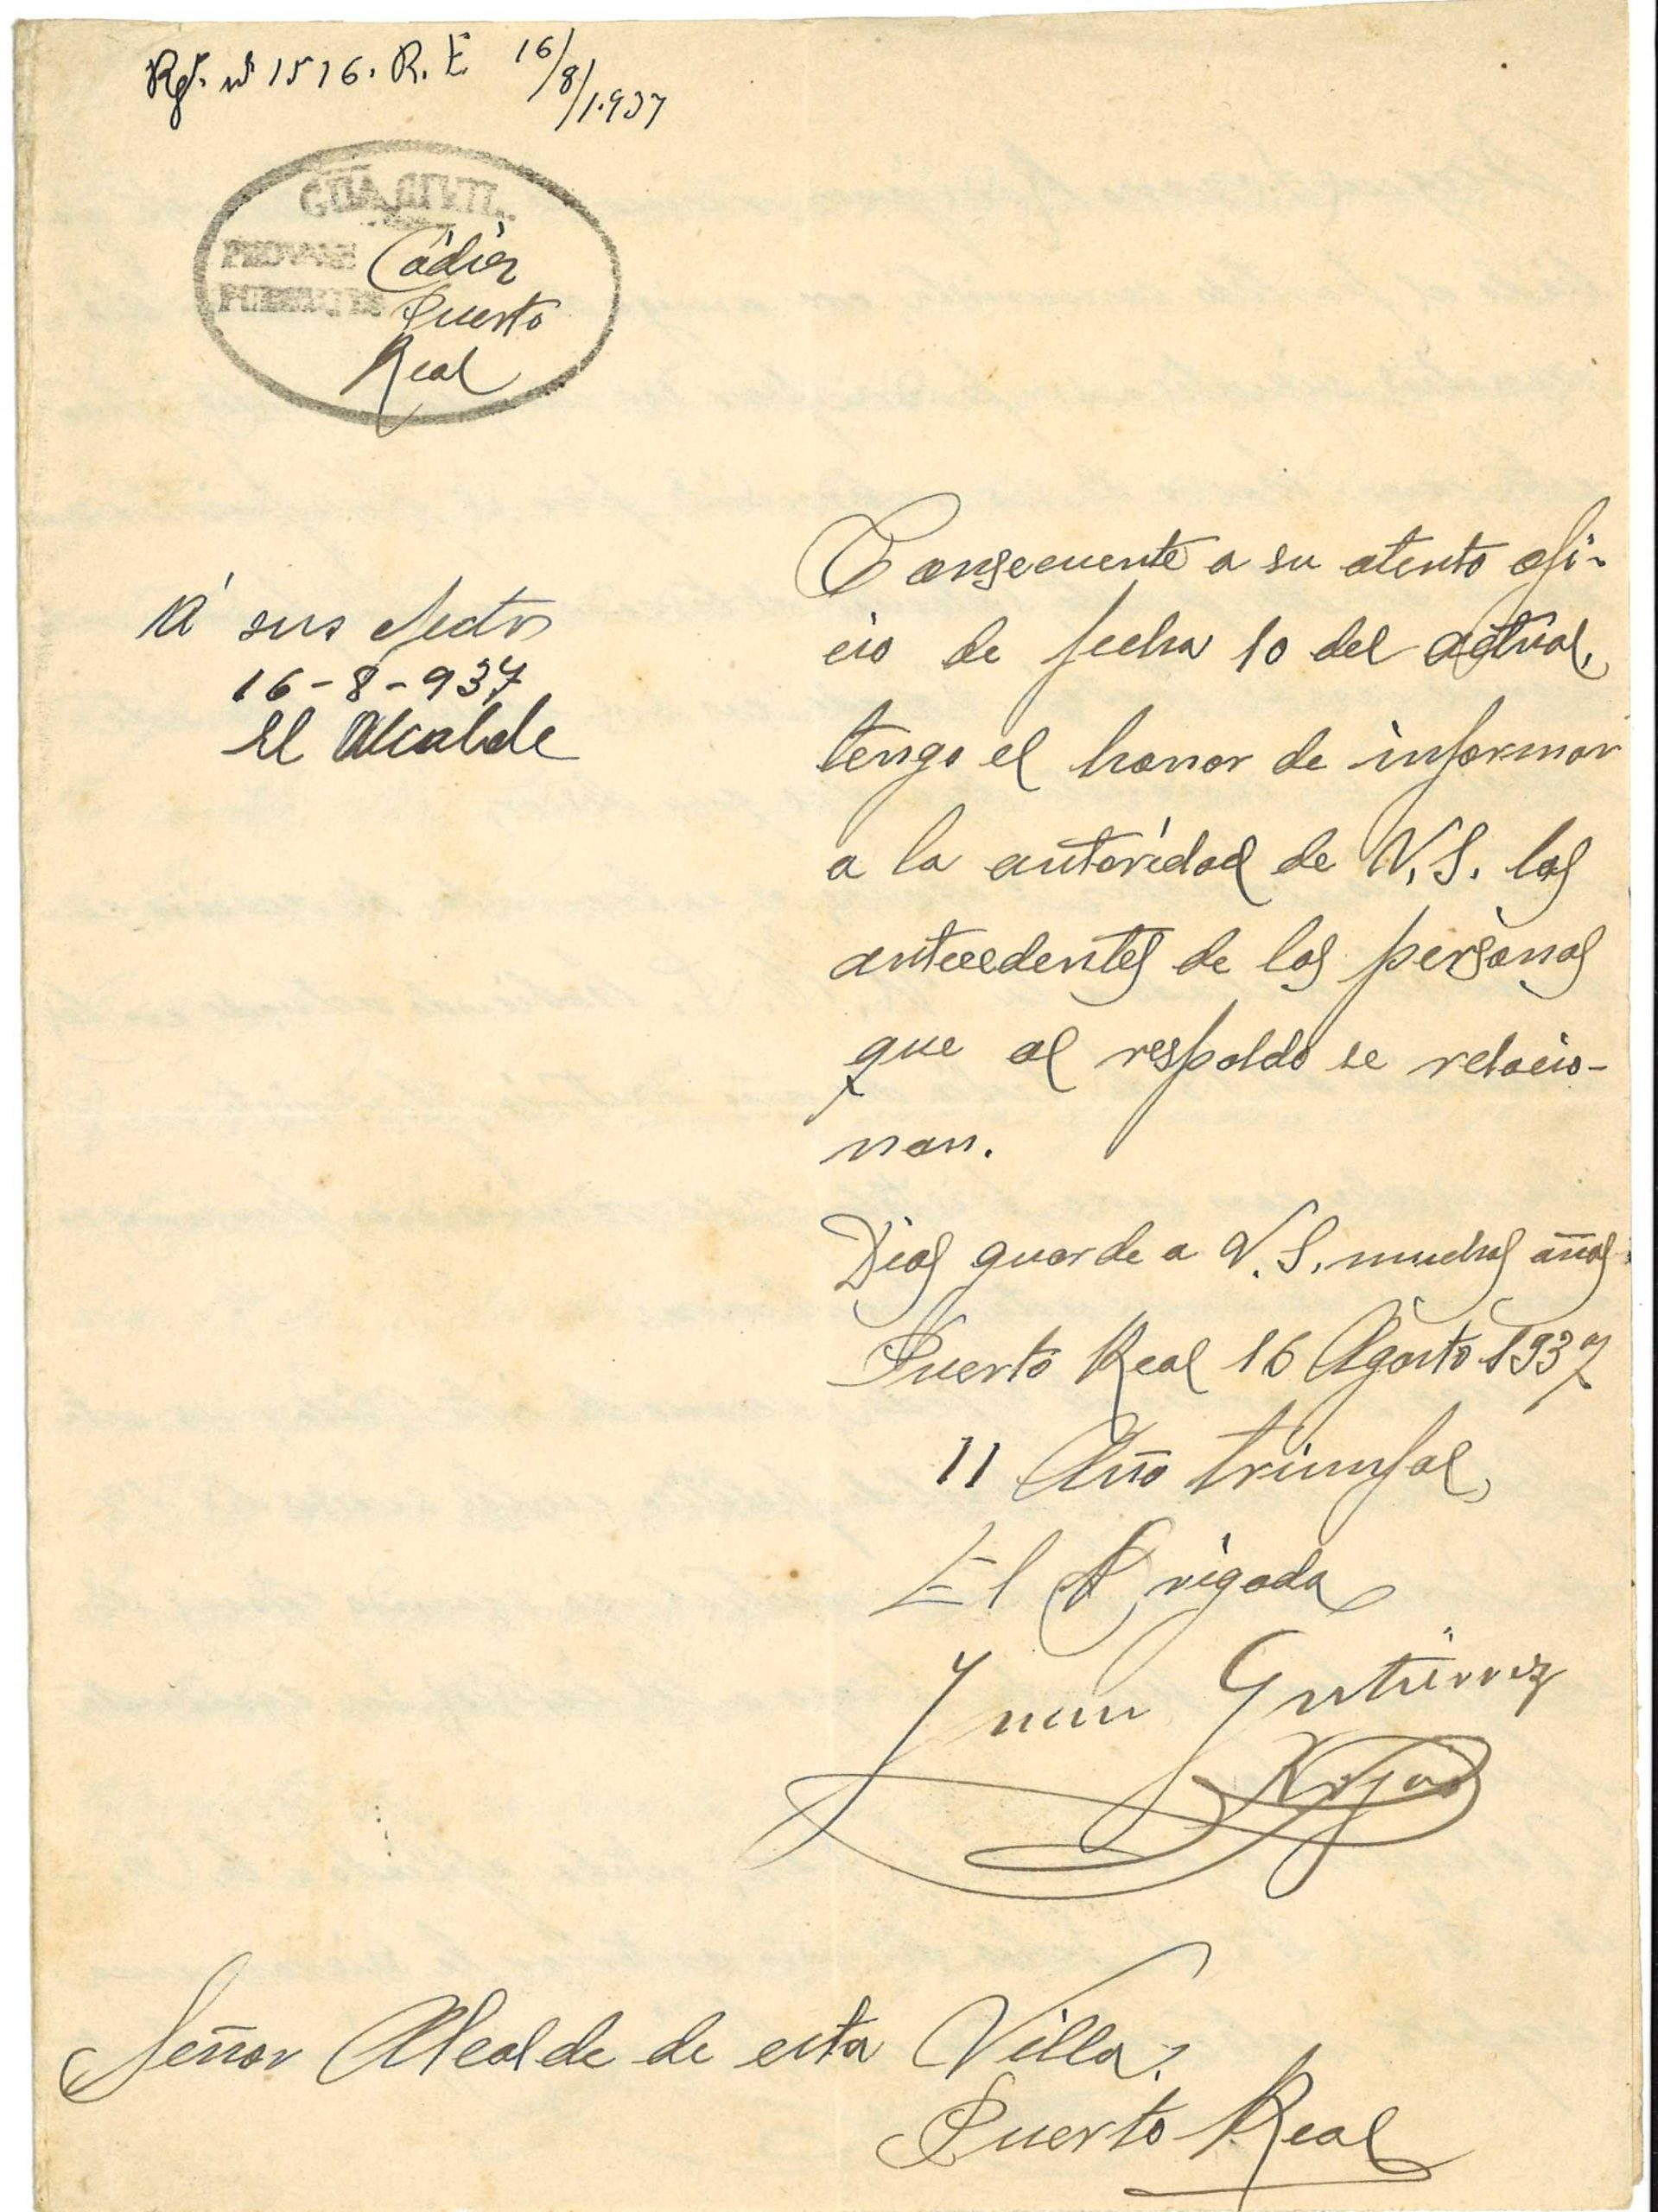 Rgº. nº 1516. R. E 16/8/1.937
GUA. CIVIL.
Cádiz
Puerto
Real
A' sus efectos
16-8-937
El Alcalde
Consecuente a su atento ofi-
cio de fecha 10 del actual,
tengo el honor de informar
a la autoridad de V.S. los
antecedentes de las personas
que al respaldo se relacio-
nan.
Dios guarde a V.S. muchos años.
Puerto Real 16 Agosto 1937
II Año triunfal,
El Brigada
Juan Gutierrez
Rojas
Señor Alcalde de esta Villa.
Puerto Real